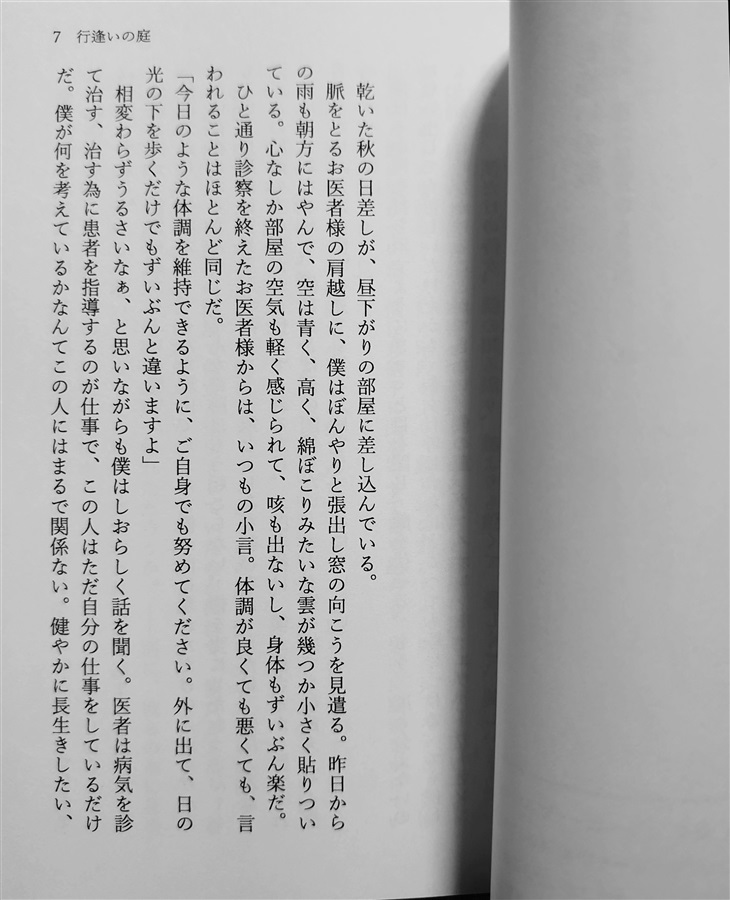 7 行逢いの庭
乾いた秋の日差しが、昼下がりの部屋に差し込んでいる。
脈をとるお医者様の肩越しに、僕はぼんやりと張出し窓の向こうを見遣る。昨日から
の雨も朝方にはやんで、空は青く、高く、綿ぼこりみたいな雲が幾つか小さく貼りつい
ている。心なしか部屋の空気も軽く感じられて、咳も出ないし、身体もずいぶん楽だ。
ひと通り診察を終えたお医者様からは、いつもの小言。体調が良くても悪くても、言
われることはほとんど同じだ。
「今日のような体調を維持できるように、ご自身でも努めてください。外に出て、日の
光の下を歩くだけでもずいぶんと違いますよ」
相変わらずうるさいなぁ、と思いながらも僕はしおらしく話を聞く。医者は病気を診
て治す、治す為に患者を指導するのが仕事で、この人はただ自分の仕事をしているだけ
だ。僕が何を考えているかなんてこの人にはまるで関係ない。健やかに長生きしたい、